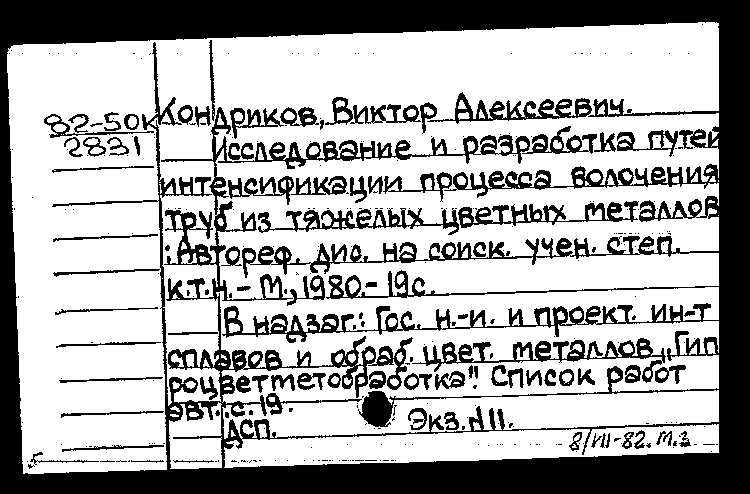 82-50к Кондриков, Виктор Алексеевич.
2831 Исследование и разработка путей
интенсификации процесса волочения
труб из тяжелых цветных металлов
: Автореф. дис. на соиск. учен. степ.
к.т.н. - М., 1980. - 19с.
В надзаг.: Гос. н.-и. и проект. ин-т
сплавов и обраб. цвет. металлов „Гип
роцветметобработка". Список работ
авт.: с. 19.
ДСП. Экз. №11.
8/VII-82. М.з